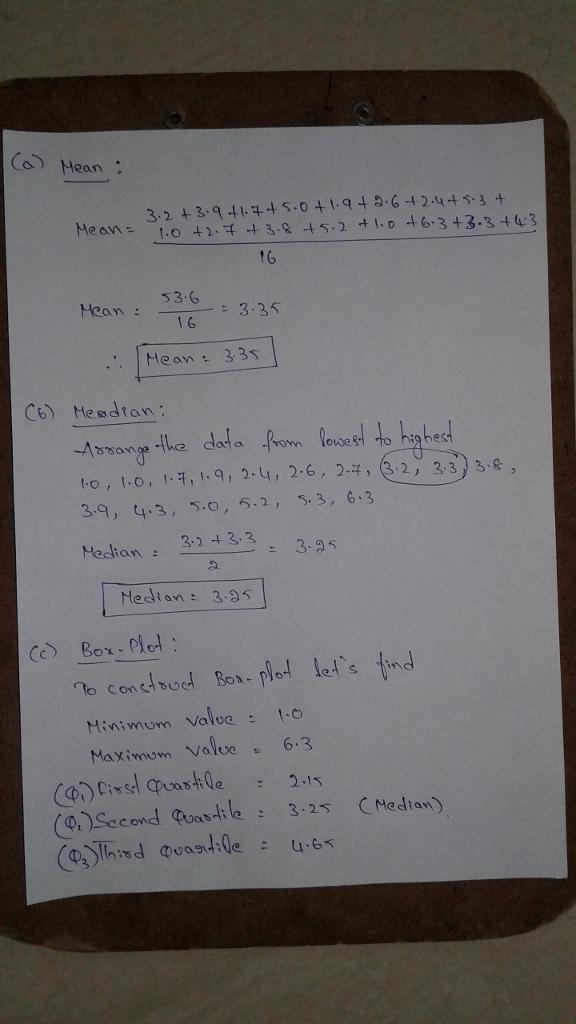 (a) Mean :
3.2 + 3.9 + 1.7 + 5.0 + 1.9 + 2.6 + 2.4 + 5.3 +
Mean = 1.0 + 2.7 + 3.8 + 5.2 + 1.0 + 6.3 + 3.3 + 4.3
16
Mean = 53.6 / 16 = 3.35
∴ Mean = 3.35
(b) Median :
Arrange the data from lowest to highest
1.0, 1.0, 1.7, 1.9, 2.4, 2.6, 2.7, 3.2, 3.3, 3.8,
3.9, 4.3, 5.0, 5.2, 5.3, 6.3
Median = 3.2 + 3.3 / 2 = 3.25
Median = 3.25
(c) Box-Plot :
To construct Box-plot let's find
Minimum value = 1.0
Maximum value = 6.3
(Q1) First Quartile = 2.15
(Q2) Second Quartile = 3.25 (Median).
(Q3) Third Quartile = 4.65